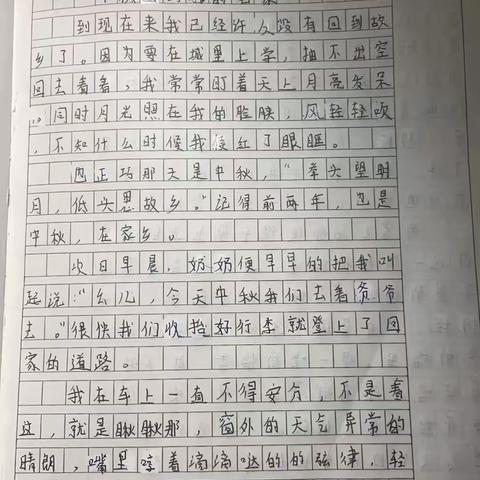 到现在来我已经许久没有回到故
乡了。因为要在城里上学，抽不出空
回去看看，我常常盯着天上月亮发呆
。同时月光照在我的脸颊，风轻轻吹
，不知什么时候我红了眼眶。
正巧那天是中秋，“举头望明
月，低头思故乡。”记得前两年，也是
中秋，在家乡。
次日早晨，奶奶便早早的把我叫
起说：“幺儿，今天中秋我们去看爷爷
去。”很快我们收拾好行李就登上了回
家的道路。
我在车上一直不得安分，不是看
这，就是瞅瞅那，窗外的天气异常的
晴朗，嘴里哼着滴滴哒的的弦律，轻